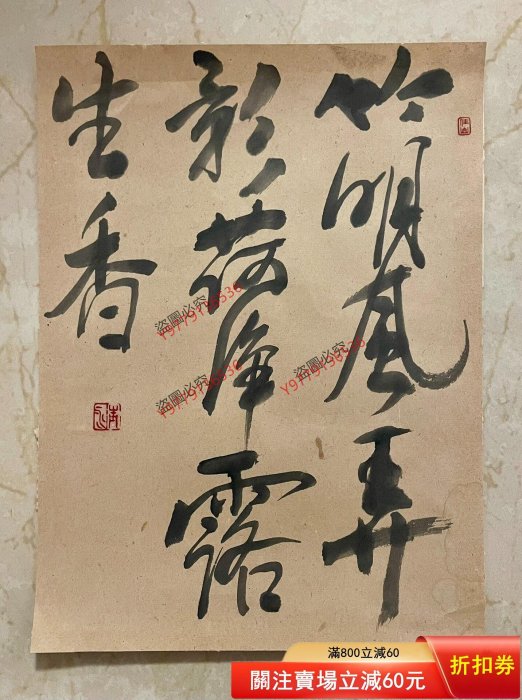 竹明風弄
影荷淨露
生香
盜圖必究
Y9779196536
盜圖必究
Y9779196536
盜圖必究
Y9779196536
滿800立減60
關注賣場立減60元
折扣券